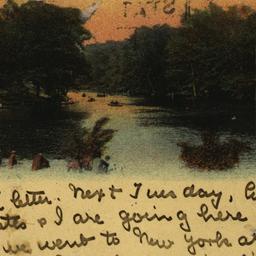 STAT
letter. Next Tuesday,
& I are going here
we went to New York a